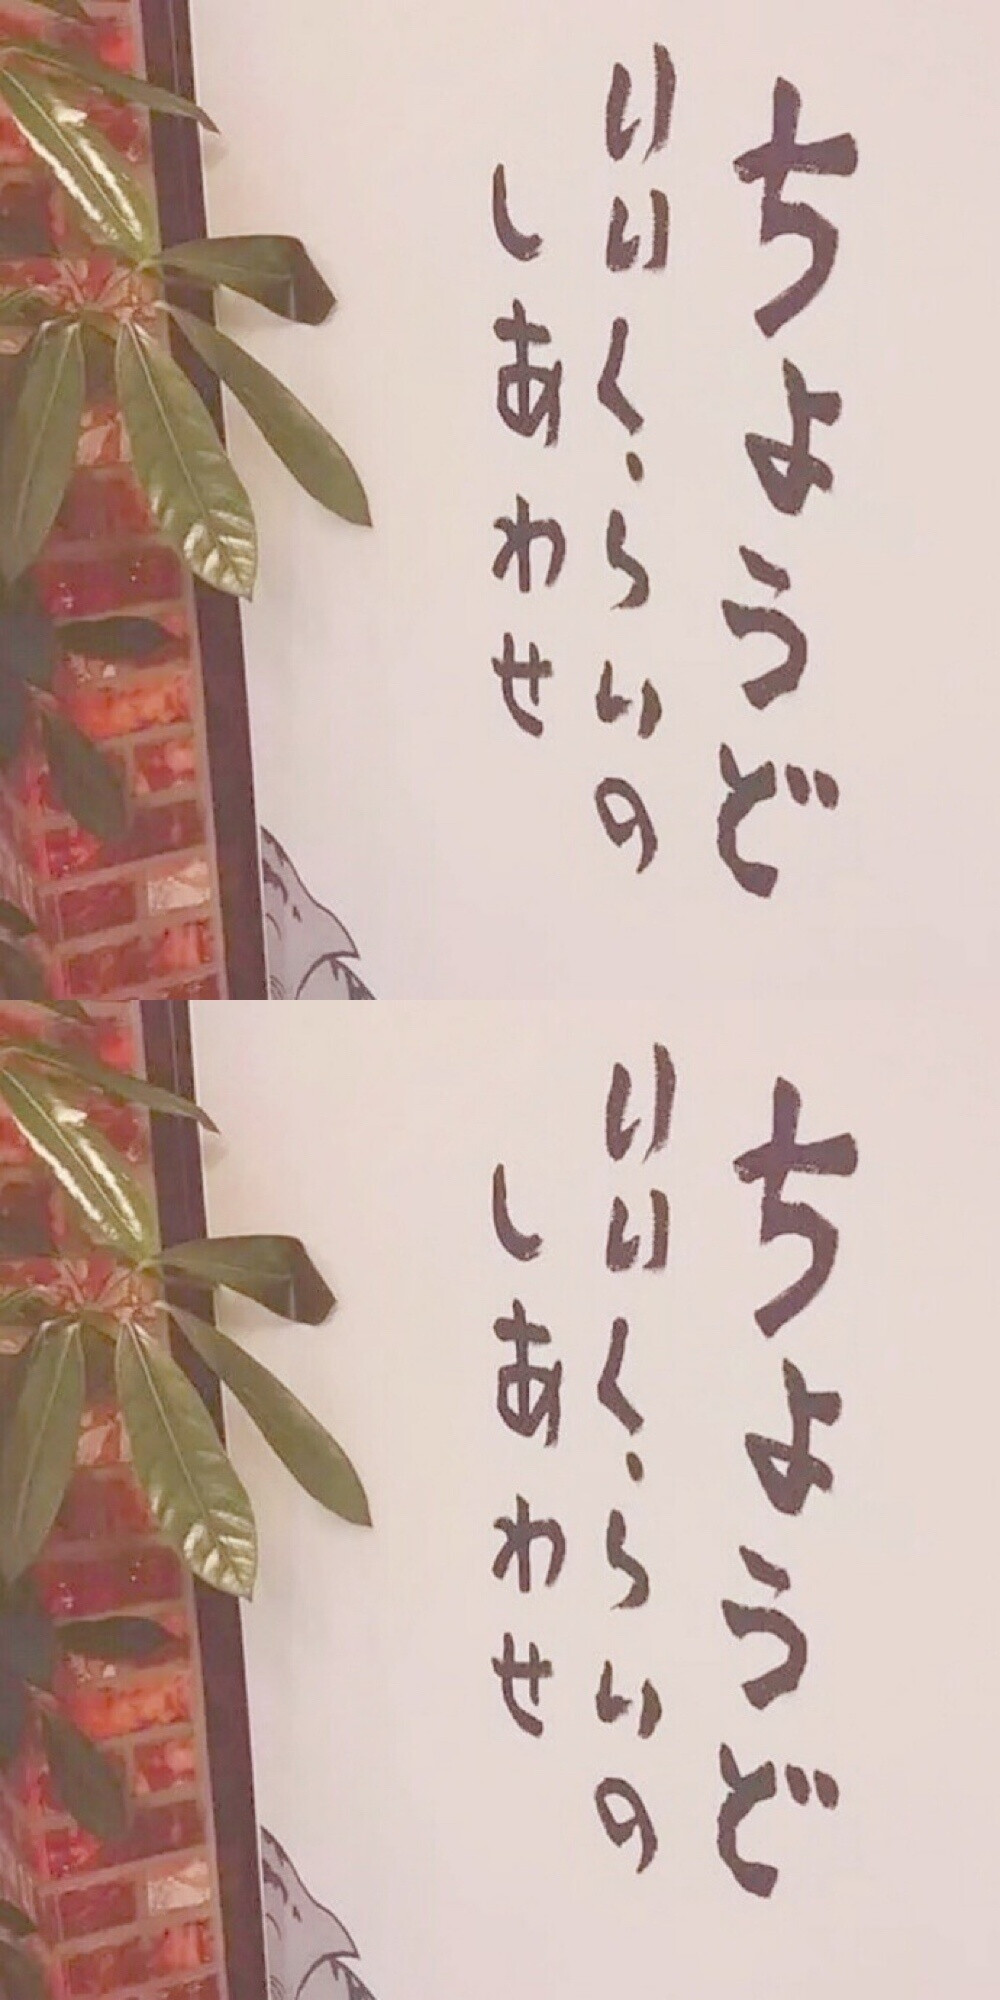 ちょうど
いいくらいの
しあわせ
ちょうど
いいくらいの
しあわせ